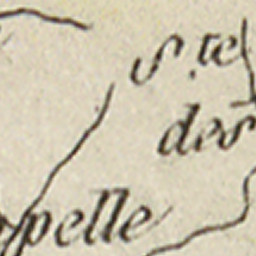 S.te
des
pelle